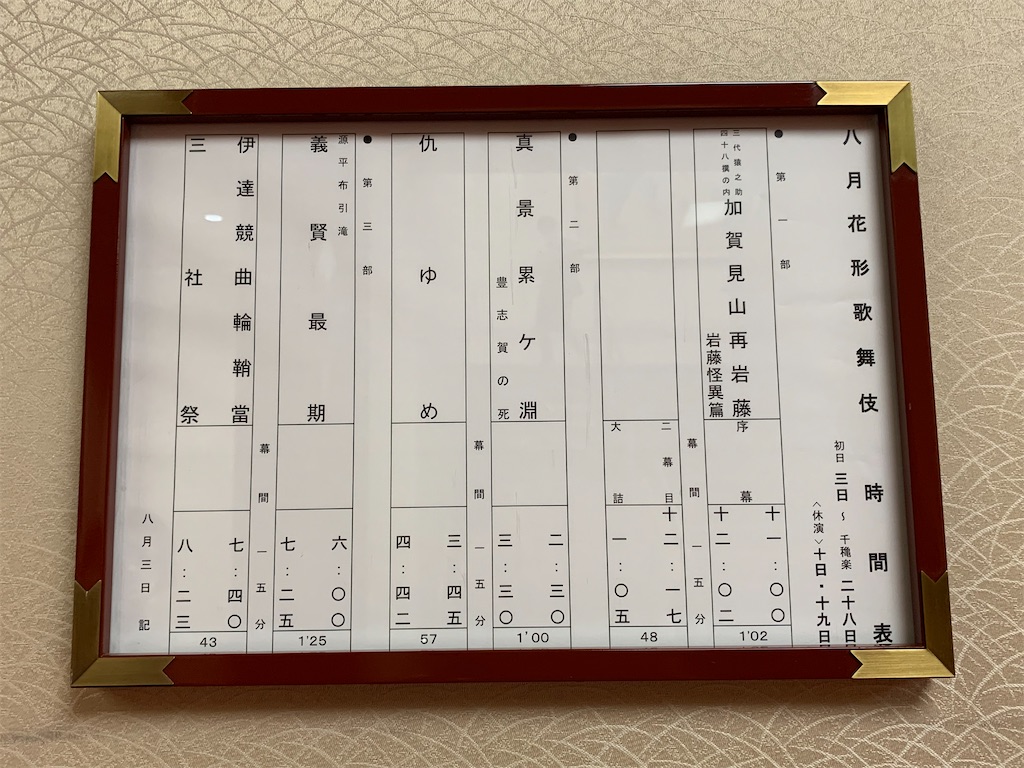 八月花形歌舞伎 時間表
初日 三日 ~ 千穐楽 二十八日
〈休演〉十日・十九日
● 第一部
三代猿之助
四十八撰の内
加賀見山再岩藤
岩藤怪異篇
序幕
十一：〇〇
十二：〇二
1'02
幕間 一五分
二幕目
大詰
十二：一七
一：〇五
48
● 第二部
真景累ケ淵
豊志賀の死
二：三〇
三：三〇
1'00
幕間 一五分
仇ゆめ
三：四五
四：四二
57
● 第三部
源平布引滝
義賢最期
六：〇〇
七：二五
1'25
幕間 一五分
伊達競曲輪鞘當
三社祭
七：四〇
八：二三
43
八月三日 記